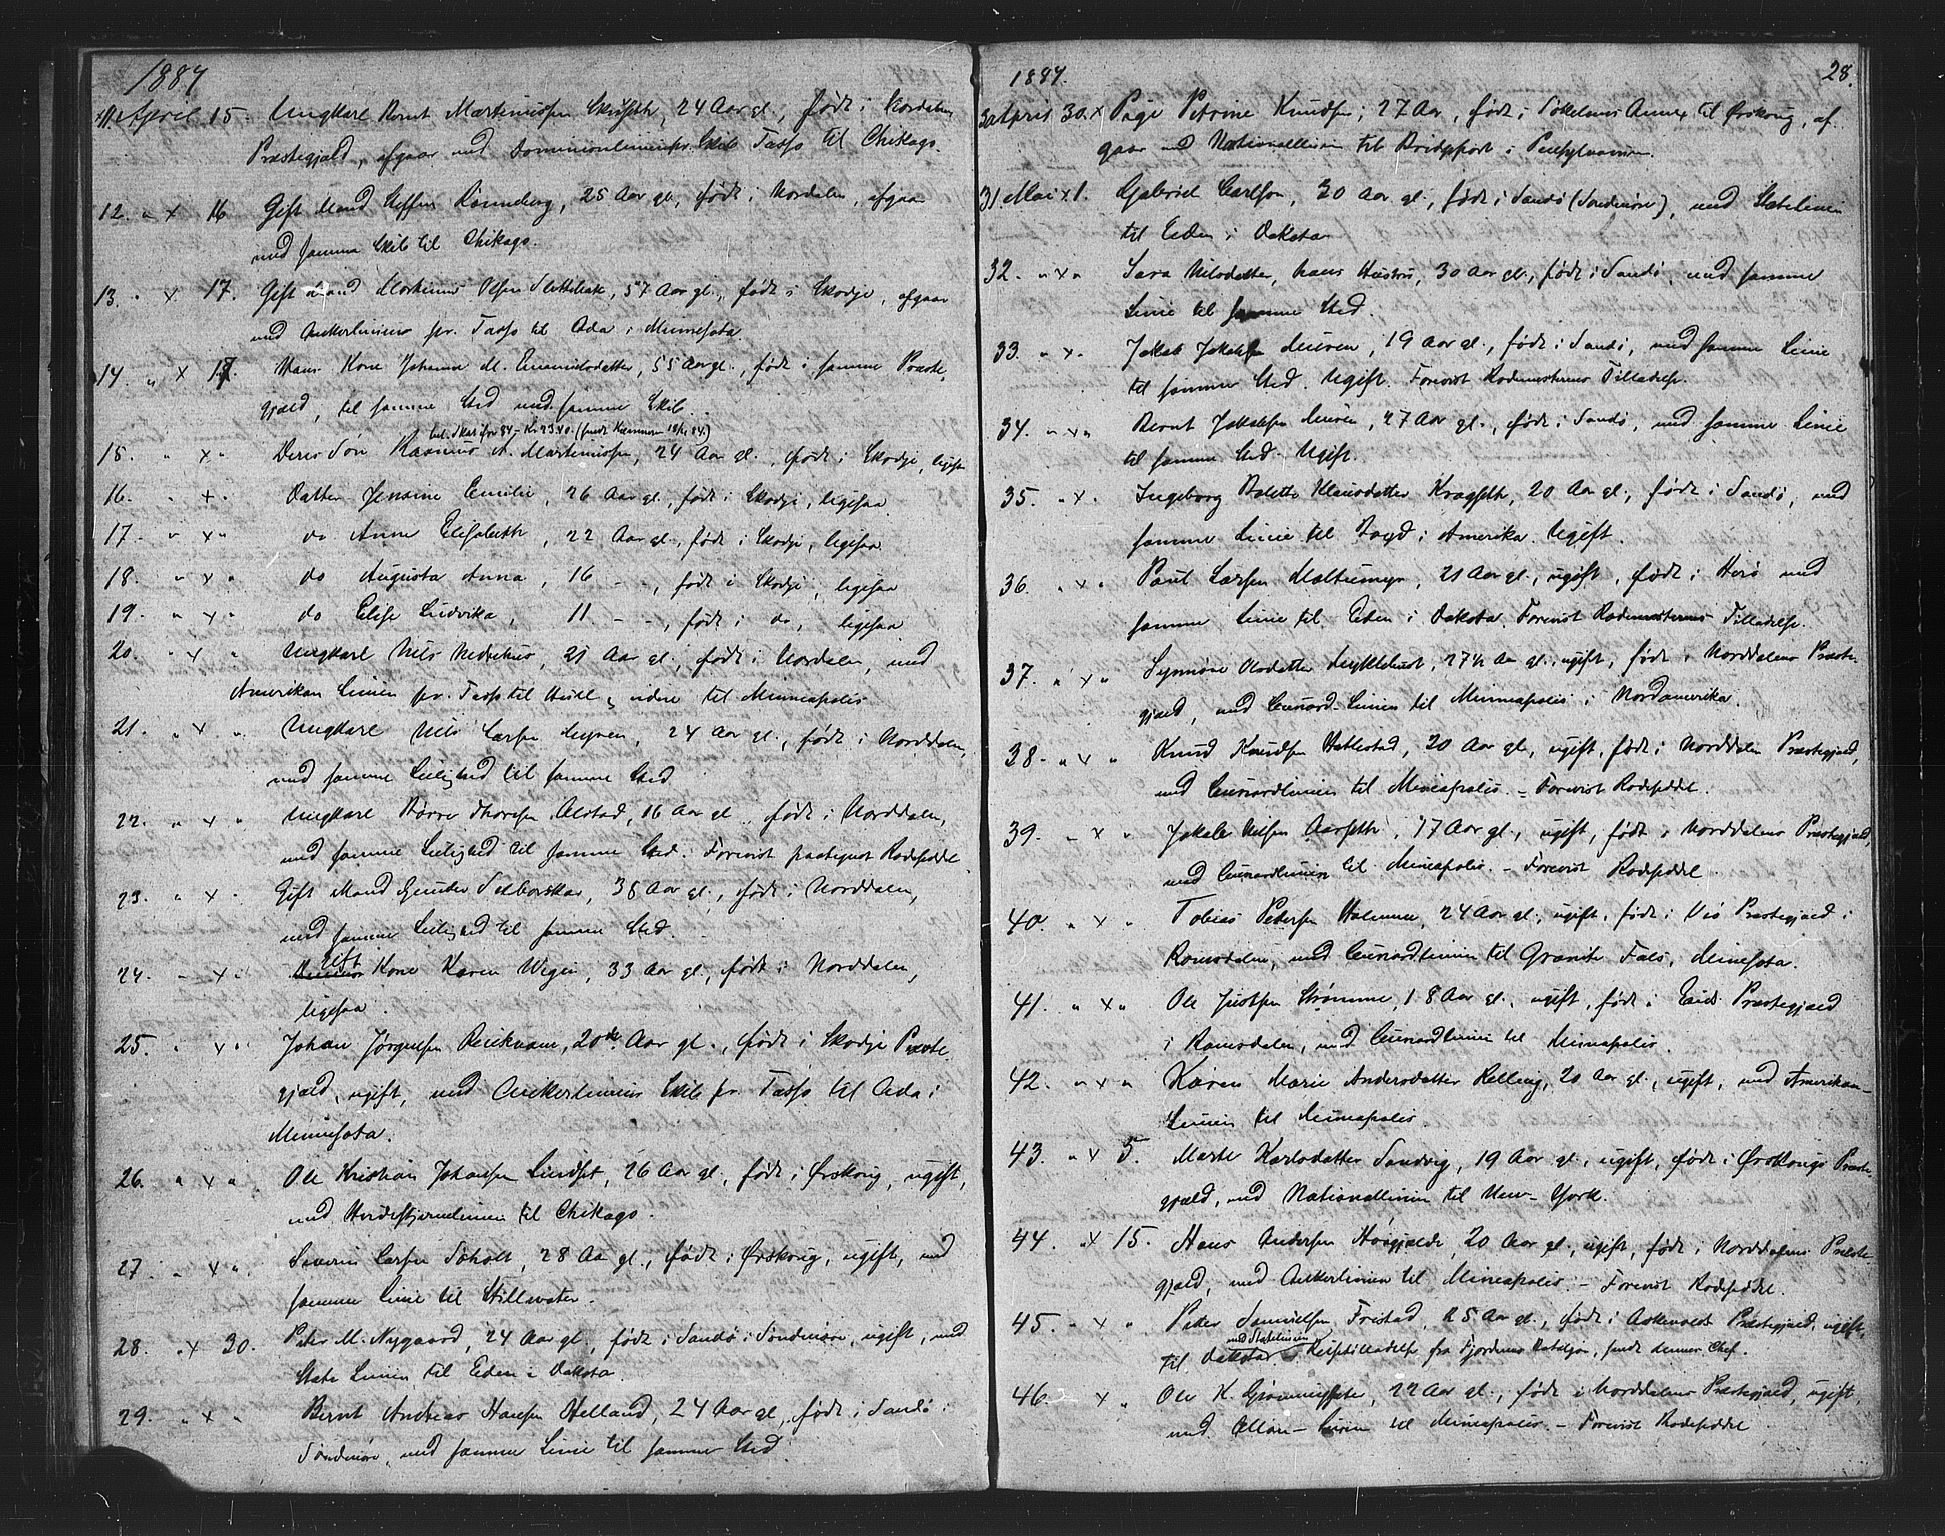 1884
11. April 15. Ungkarl Bernt Martinussen, 24 Aar gl., født i Nordalen
Præstegjeld, afgaar med Dominionliniens pr. Skib Tasso til Chikago.
12. " x 16. Gift Mand Steffen Rønneberg, 25 Aar gl., født i Nordalen, afgaar
med samme Skib til Chikago.
13. " x 17. Gift Mand Martinus Olsen, 57 Aar gl., født i Skodje, afgaar
med Ankerliniens pr. Tasso til Ada i Minnesota.
14. " x 17. Hans Kone Johanne M. Emanuelsdatter, 55 Aar gl., født i samme Præste-
gjæld, til samme Sted med samme Skib.
bet. Skat for 84 - Kr 23.40.
15. " x " Deres Søn Rasmus A. Martinussen, 24 Aar gl., født i Skodje, ligesaa
16. " x " Datter Jensine Emilie, 26 Aar gl., født i Skodje, ligesaa
17. " x " do Anne Elisabeth, 22 Aar gl., født i Skodje, ligesaa
18. " x " do Augusta Anna, 16 - ", født i Skodje, ligesaa
19. " x " do Elise Ludvika, 11 - -, født i do, ligesaa
20. " x " Ungkarl Nils, 21 Aar gl., født i Nordalen, med
Amerikan Linien pr. Tasso til Hull og videre til Minneapolis
21. " x " Ungkarl Nils Larsen, 24 Aar gl., født i Norddalen,
med samme Leilighed til samme Sted
22. " x " Ungkarl Børre Thoresen Alstad, 16 Aar gl., født i Norddalen,
med samme Leilighed til samme Sted. Forevist paategnet Rodeseddel
23. " x " Gift Mand, 38 Aar gl., født i Norddalen,
med samme Leilighed til samme Sted.
gift
24. - x " Kone Karen, 33 Aar gl., født i Norddalen,
ligesaa.
25. " x " Johan Jørgensen, 20 Aar gl., født i Skodje Præste-
gjæld, ugift, med Ankerliniens Skib pr. Tasso til Ada i
Minnesota.
26. " x " Ole Kristian Johansen Lindset, 26 Aar gl., født i Ørskoug, ugift,
med Hvidestjernelinien til Chikago.
27. " x " Severin Larsen Søholt, 28 Aar gl., født i Ørskoug, ugift, med
samme Linie til Stillwater.
28. " x 30. Peter M. Nygaard, 24 Aar gl., født i Sandø i Søndmøre, ugift, med
State Linien til Eden i Dakota.
29. " x " Bernt Andreas Hansen Helland, 24 Aar gl, født i Sandø i
Søndmøre, med samme Linie til samme Sted.
1884. 28.
30. April 30. x Pige Petrine Knudsen, 27 Aar, født i Annex til Ørskoug, af-
gaar med Nationallinien til Bridgeport i Pensylvanien.
31. Mai x 1. Gabriel Carlson, 30 Aar gl., født i Sandø (Søndmøre), med Statelinien
til Eden i Dakota
32. " x " Sara Nilsdatter, hans Hustru, 30 Aar gl., født i Sandø, med samme
Linie til samme Sted.
33. " x " Jakob Jakobsen, 19 Aar gl., født i Sandø, med samme Linie
til samme Sted. Ugift. Forevist Rodemesterens Tilladelse.
34. " x " Bernt Jakobsen, 27 Aar gl., født i Sandø, med samme Linie
til samme Sted. Ugift.
35. " x " Ingeborg Bolette Klausdatter Kragseth, 20 Aar gl., født i Sandø, med
samme Linie til Boyd i Amerika. Ugift.
36. " x " Paul Larsen, 21 Aar gl., ugift, født i Herø med
samme Linie til Eden i Dakota. Forevist Rodemesterens Tilladelse.
37. " x " Synnøve Olsdatter, 27½ Aar gl., ugift, født i Norddalens Præste-
gjæld, med Cunard-Linien til Minneapolis i Nordamerika.
38. " x " Knud Knudsen, 20 Aar gl., ugift, født i Norddalen Præstegjæld,
med Cunardlinien til Mineapolis. - Forevist Rodeseddel.
39. - x " Jakob Nilsen Aarseth, 17 Aar gl., ugift, født i Norddalens Præstegjæld,
med Cunardlinien til Mineapolis. - Forevist Rodeseddel.
40. " x " Tobias Petersen, 24 Aar gl., ugift, født i Vø Præstegjæld i
Romsdalen, med Cunardlinien til Granite Fals, Minesota.
41. " x " Ole Strømme, 18 Aar gl., ugift, født i Eids Præstegjæld
i Romsdalen, med Cunardlinien til Minnapolis.
42. " x " Karen Marie Andersdatter Relling, 20 Aar gl., ugift, med Amerikan-
Linien til Minneapolis.
43. " x 5. Marte Karlsdatter Sandvig, 19 Aar gl., ugift, født i Ørskougs Præste-
gjæld, med Nationallinien til New-York.
44. " x 15. Hans Andersen, 20 Aar gl., ugift, født i Norddalens Præste-
gjæld, med Ankerlinien til Mineapolis. - Forevist Rodeseddel.
45. " x " Peder Samuelsen Fristad, 25 Aar gl., født i Askevolds Præstegjæld, ugift,
med Statelinien
til Dakota. Reisetilladelse fra Fjordenes Bataljon, sendt dennes Chef.
46. x " Ole K., 22 Aar gl., født i Norddalens Præstegjæld, ugift,
med Allan-Linien til Mineapolis. - Forevist Rodeseddel